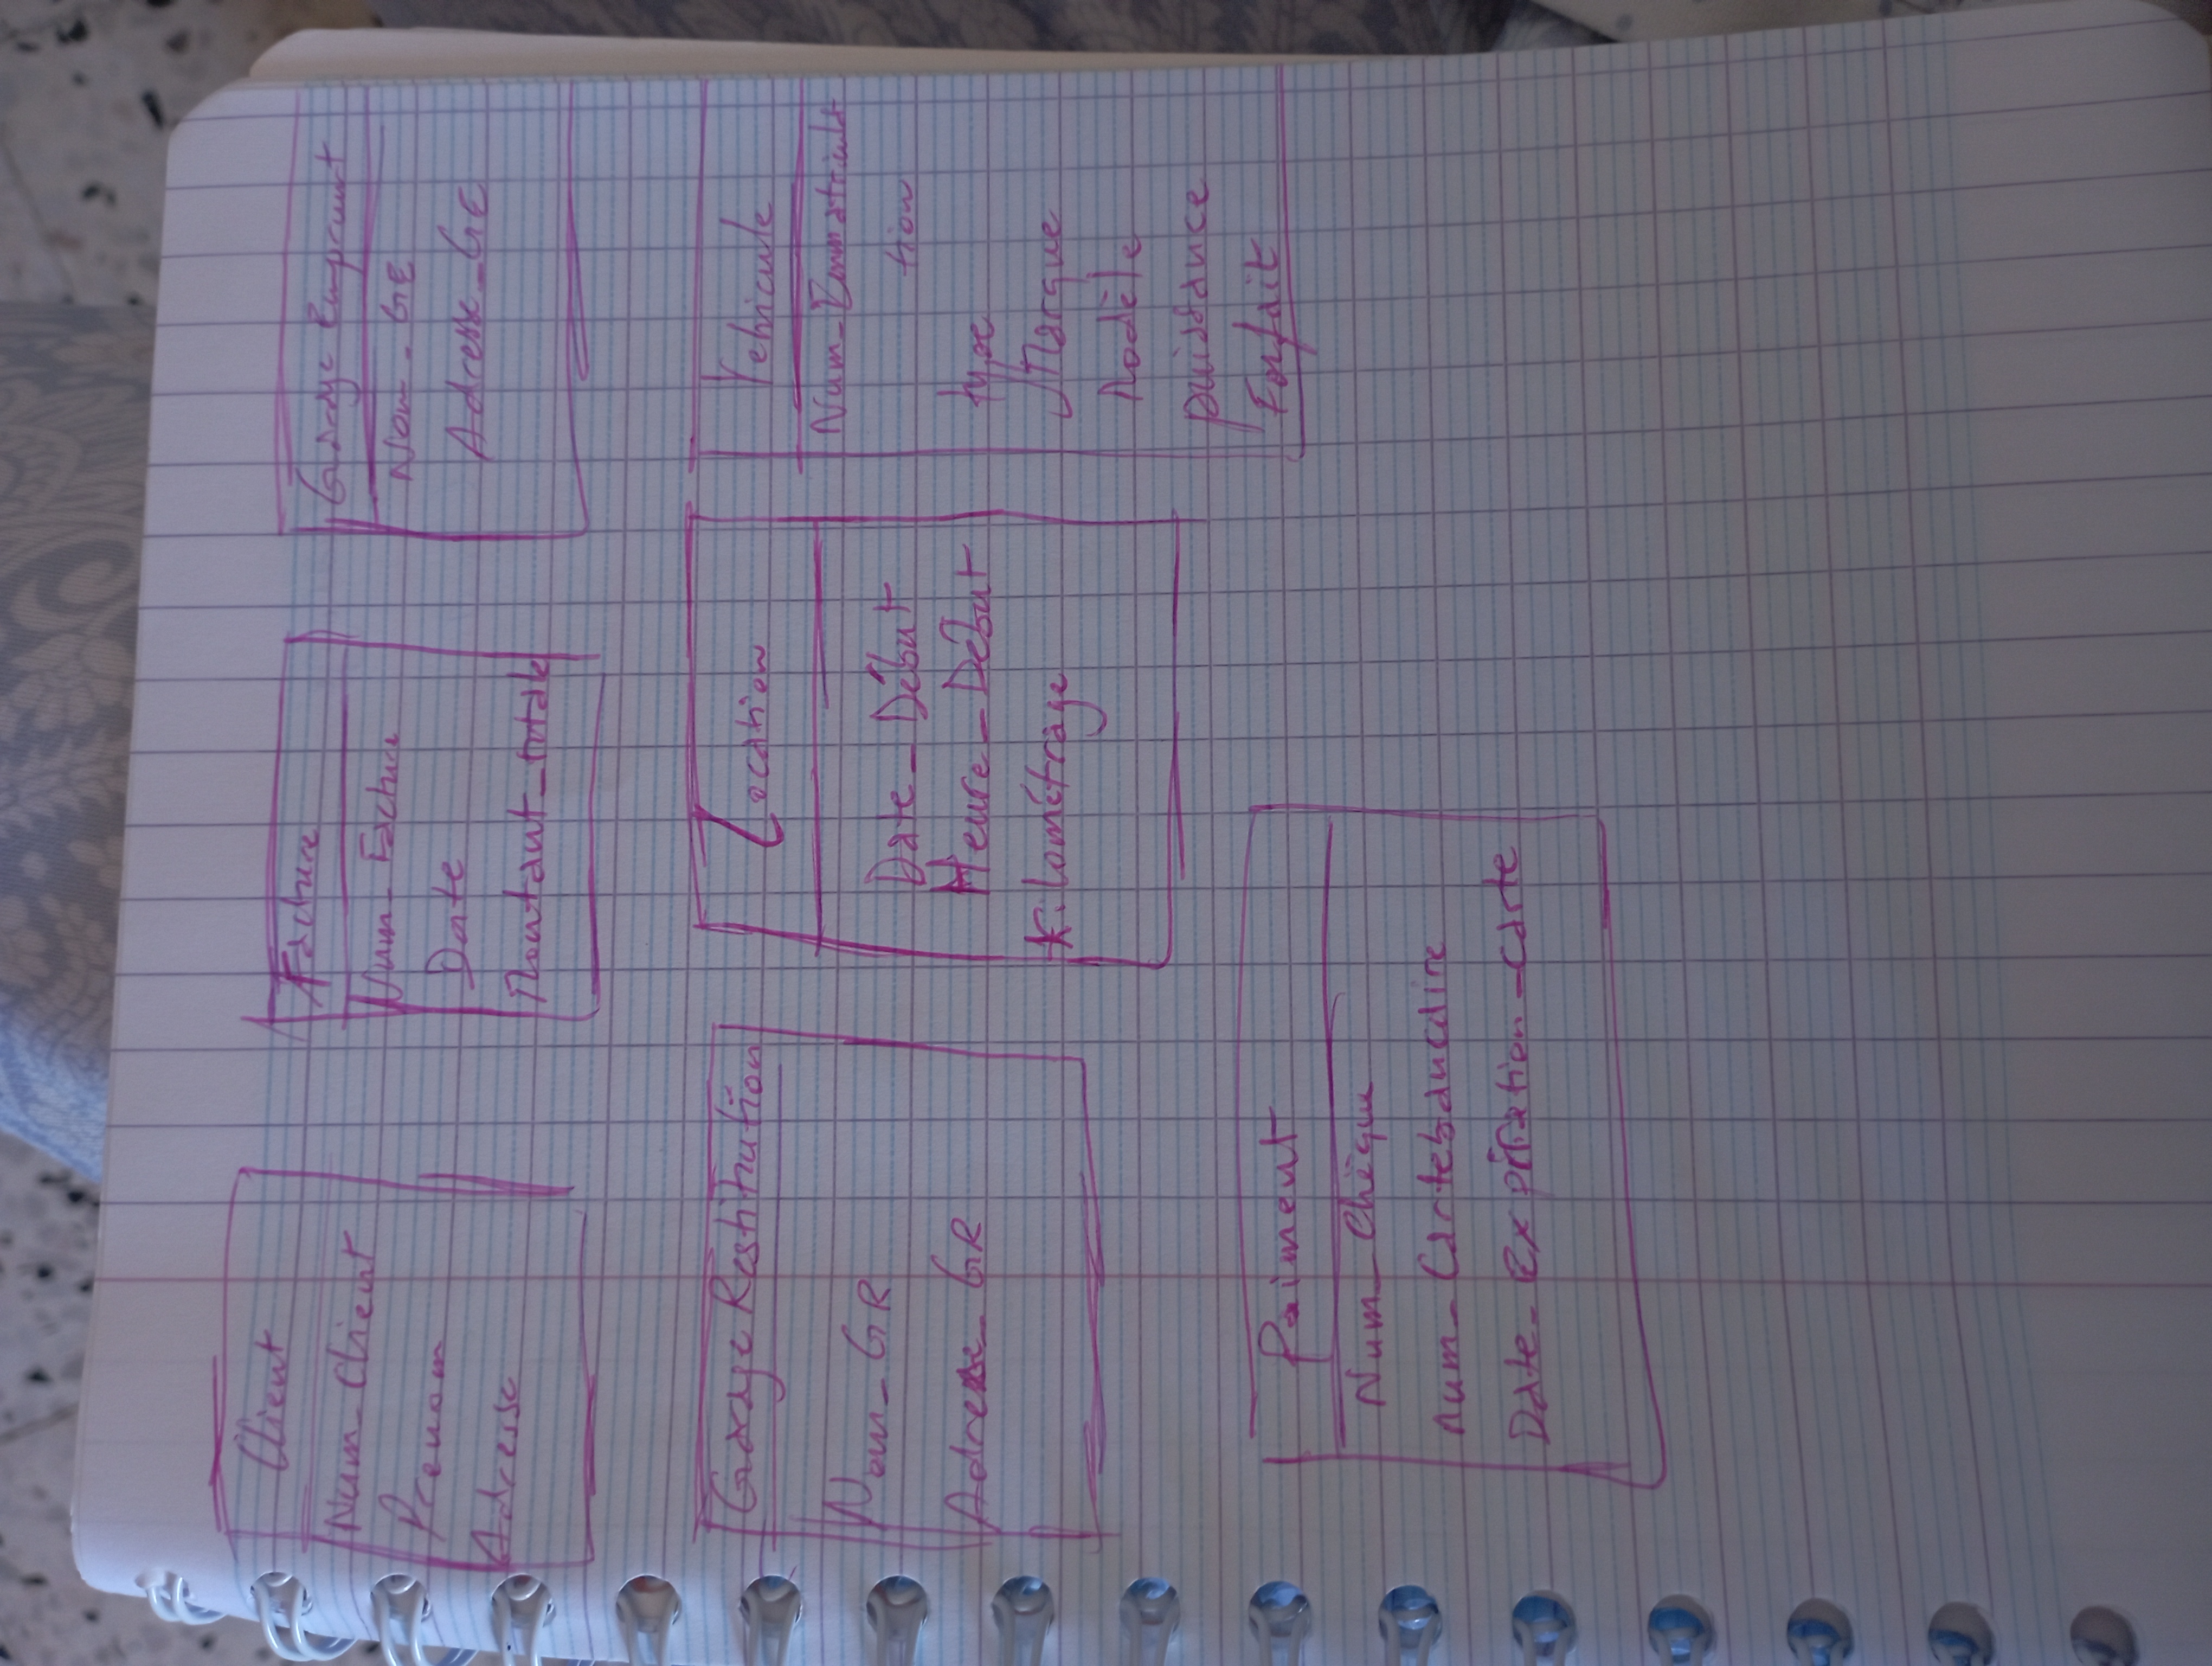 Client
Num_Client
Prenom
Adresse
Facture
Num_Facture
Date
Montant_totale
Garage Emprunt
Nom_GE
Adresse_GE
Garage Restitution
Nom_GR
Adresse_GR
Location
Date_Début
Heure_Début
Kilométrage
Vehicule
Num_Immatricula
tion
type
Marque
Modèle
puissance
Forfait
Paiment
Num_Chèque
num_Cartebancaire
Date_Expiration_carte